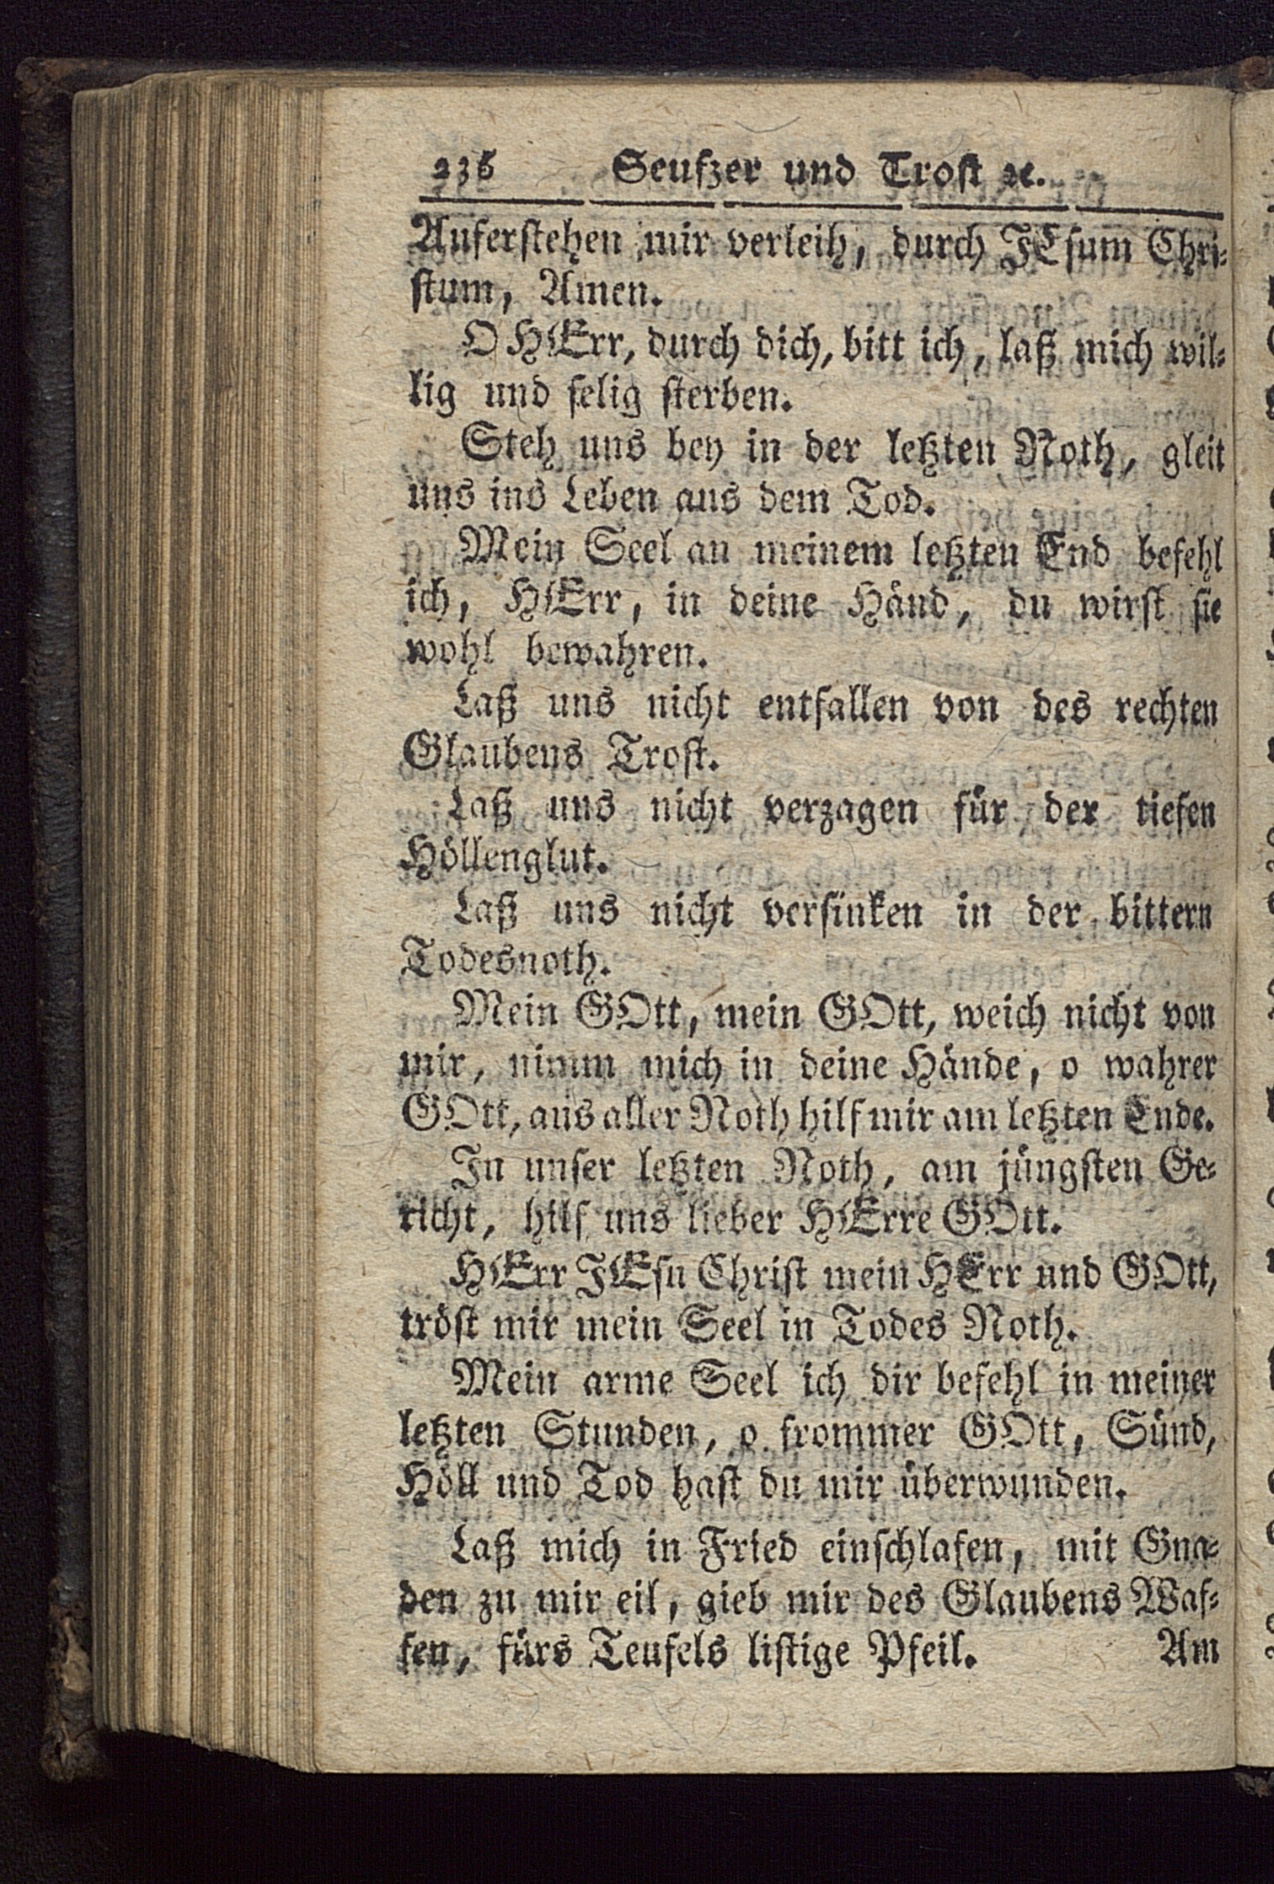 236 Seufzer und Trost ꝛc.
Auferstehen mir verleih, durch JEsum Chri-
stum, Amen.
O HErr, durch dich, bitt ich, laß mich wil-
lig und selig sterben.
Steh uns bey in der letzten Noth, gleit
uns ins Leben aus dem Tod.
Mein Seel an meinem letzten End befehl
ich, HErr, in deine Händ, du wirst sie
wohl bewahren.
Laß uns nicht entfallen von des rechten
Glaubens Trost.
Laß uns nicht verzagen für der tiefen
Höllenglut.
Laß uns nicht versinken in der bittern
Todesnoth.
Mein GOtt, mein GOtt, weich nicht von
mir, nimm mich in deine Hände, o wahrer
GOtt, aus aller Noth hilf mir am letzten Ende.
In unser letzten Noth, am jüngsten Ge-
richt, hilf uns lieber HErre GOtt.
HErr JEsu Christ mein HErr und GOtt,
tröst mir mein Seel in Todes Noth.
Mein arme Seel ich dir befehl in meiner
letzten Stunden, o frommer GOtt, Sünd,
Höll und Tod hast du mir überwunden.
Laß mich in Fried einschlafen, mit Gna-
den zu mir eil, gieb mir des Glaubens Waf-
fen, fürs Teufels listige Pfeil. Am